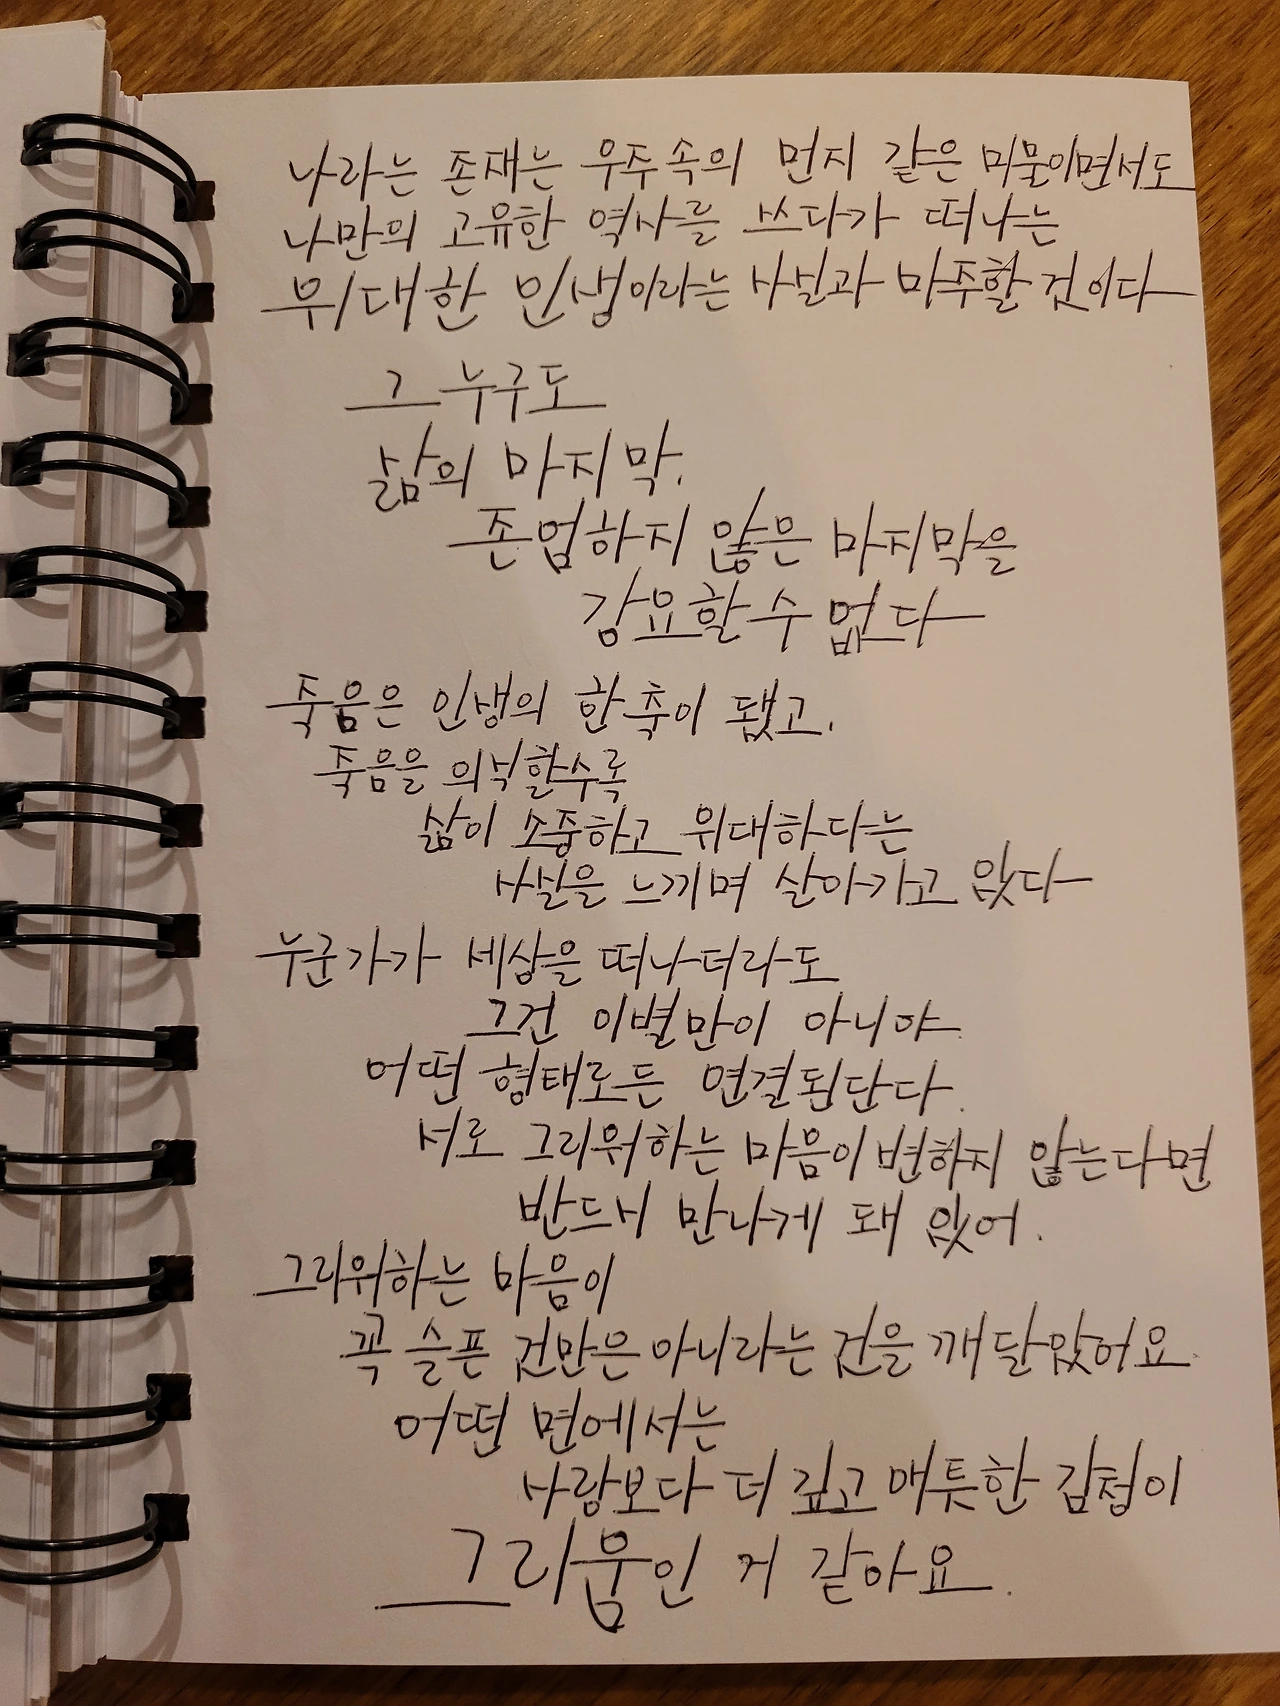 나라는 존재는 우주속의 먼지 같은 미물이면서도
나만의 고유한 역사를 쓰다가 떠나는
위대한 인생이라는 사실과 마주할 것이다
그 누구도
삶의 마지막.
존엄하지 않은 마지막을
강요할 수 없다
죽음은 인생의 한 축이 됐고.
죽음을 의식할수록
삶이 소중하고 위대하다는
사실을 느끼며 살아가고 있다
누군가가 세상을 떠나더라도
그건 이별만이 아니야.
어떤 형태로든 연결된단다.
서로 그리워하는 마음이 변하지 않는다면
반드시 만나게 돼 있어.
그리워하는 마음이
꼭 슬픈 건만은 아니라는 건을 깨달았어요.
어떤 면에서는
사랑보다 더 깊고 애틋한 감정이
그리움인 거 같아요.